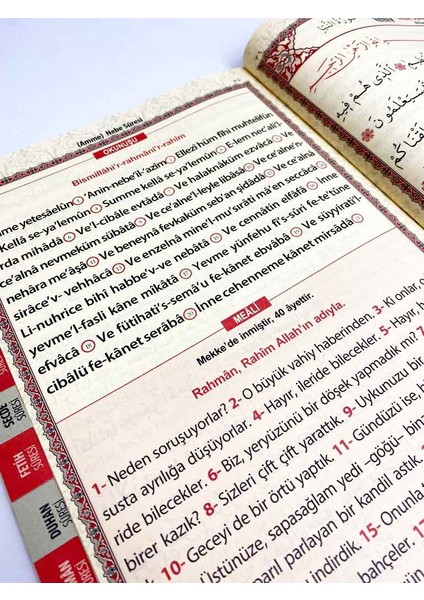 (Amme) Nebe Sûresi
OKUNUŞU
Bismillâhi'r-rahmâni'r-rahîm
me yetesâelûn 1 'Anin-nebe'i-l'azîm 2 Ellezî hüm fîhi muhtelifûn
Kellâ se-ya'lemûn 4 Summe kellâ se-ya'lemûn 5 E-lem nec'ali'l
arda mihâdâ 6 Ve'l-cibâle evtâdâ 7 Ve halaknâküm ezvâcâ 8 Ve
ce'alnâ nevmeküm sübâtâ 9 Ve ce'alne'l-leyle libâsâ 10 Ve ce'alne'n
nehâra me'âşâ 11 Ve beneynâ fevkaküm seb'an şidâdâ 12 Ve ce'alnâ
sirâce'v-vehhâcâ 13 Ve enzelnâ mine'l-mu'sirâti mâ'en seccâcâ
Li-nuhrice bihî habbe'v-ve nebâtâ 15 Ve cennâtin elfâfâ 16 İnne
yevme'l-fasli kâne mîkâtâ 17 Yevme yünfehu fi's-sûri fe-te'tûne
efvâcâ 18 Ve fütihati's-semâ'u fe-kânet ebvâbâ 19 Ve süyyirati'l
cibâlü fe-kânet serâbâ 20 İnne cehenneme kânet mirsâdâ
MEALİ
Mekke'de inmiştir. 40 âyettir.
Rahmân, Rahîm Allah'ın adıyla.
1- Neden soruşuyorlar? 2- O büyük vahiy haberinden. 3- Ki onlar,
susta ayrılığa düşüyorlar. 4- Hayır, ileride bilecekler. 5- Hayır,
ride bilecekler. 6- Biz, yeryüzünü bir döşek yapmadık mı?
birer kazık? 8- Sizleri çift çift yarattık. 9- Uykunuzu bir
10- Geceyi de bir örtü yaptık. 11- Gündüzü ise,
Üstünüze, sapasağlam yedi -göğü- bin
parıl parlayan bir kandil astık.
indirdik. 15- Onunla
bahçeler. 17-
SECDE
SÛRESİ
FETİH
SÛRESİ
DUHAN
SÛRESİ